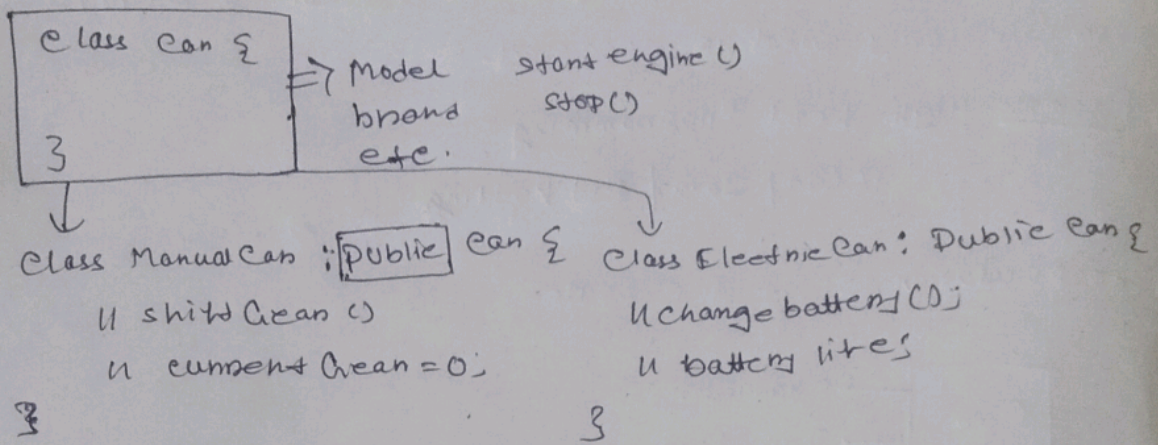 class Car {
}
=> Model
brand
etc.
start engine ()
stop ()
class Manual Car : public Car {
// shift Gear ()
// current Gear = 0;
}
class Electric Car : Public Car {
// change battery ();
// battery life;
}